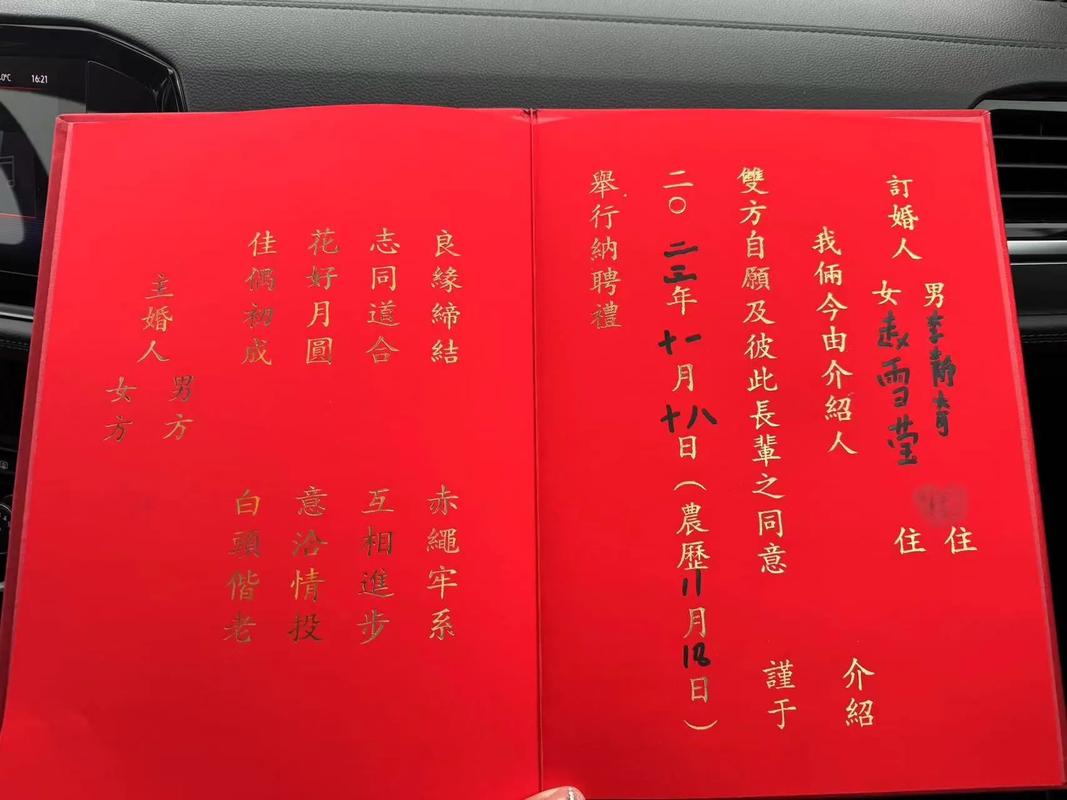 訂婚人
男李静
女赵雪莹
住
住
我倆今由介紹人
介紹
雙方自願及彼此長輩之同意
謹于
二〇二三年十一月十八日(農歷11月18日)
舉行納聘禮
良緣締結
赤繩牢系
志同道合
互相進步
花好月圓
意洽情投
佳偶初成
白頭偕老
主婚人
男方
女方
16:21